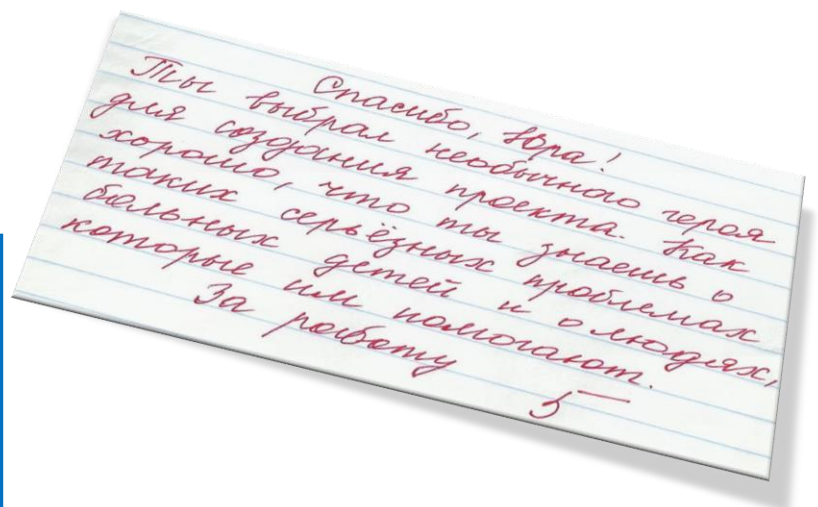 Спасибо, Юра!
Ты выбрал необычного героя
для создания проекта. Как
хорошо, что ты знаешь о
таких серьёзных проблемах
больных детей и о людях,
которые им помогают.
За работу 5